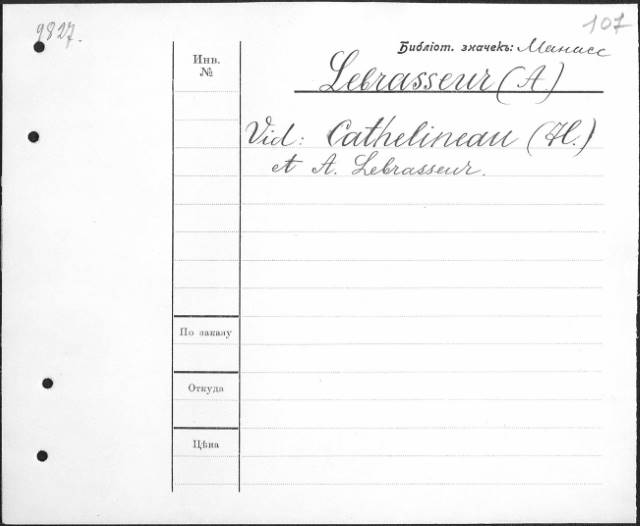 9827.
107
Библіот. значекъ: Манасс
Инв. №
Lebrasseur (A)
Vid: Cathelineau (H.)
et A. Lebrasseur.
По заказу
Откуда
Цѣна